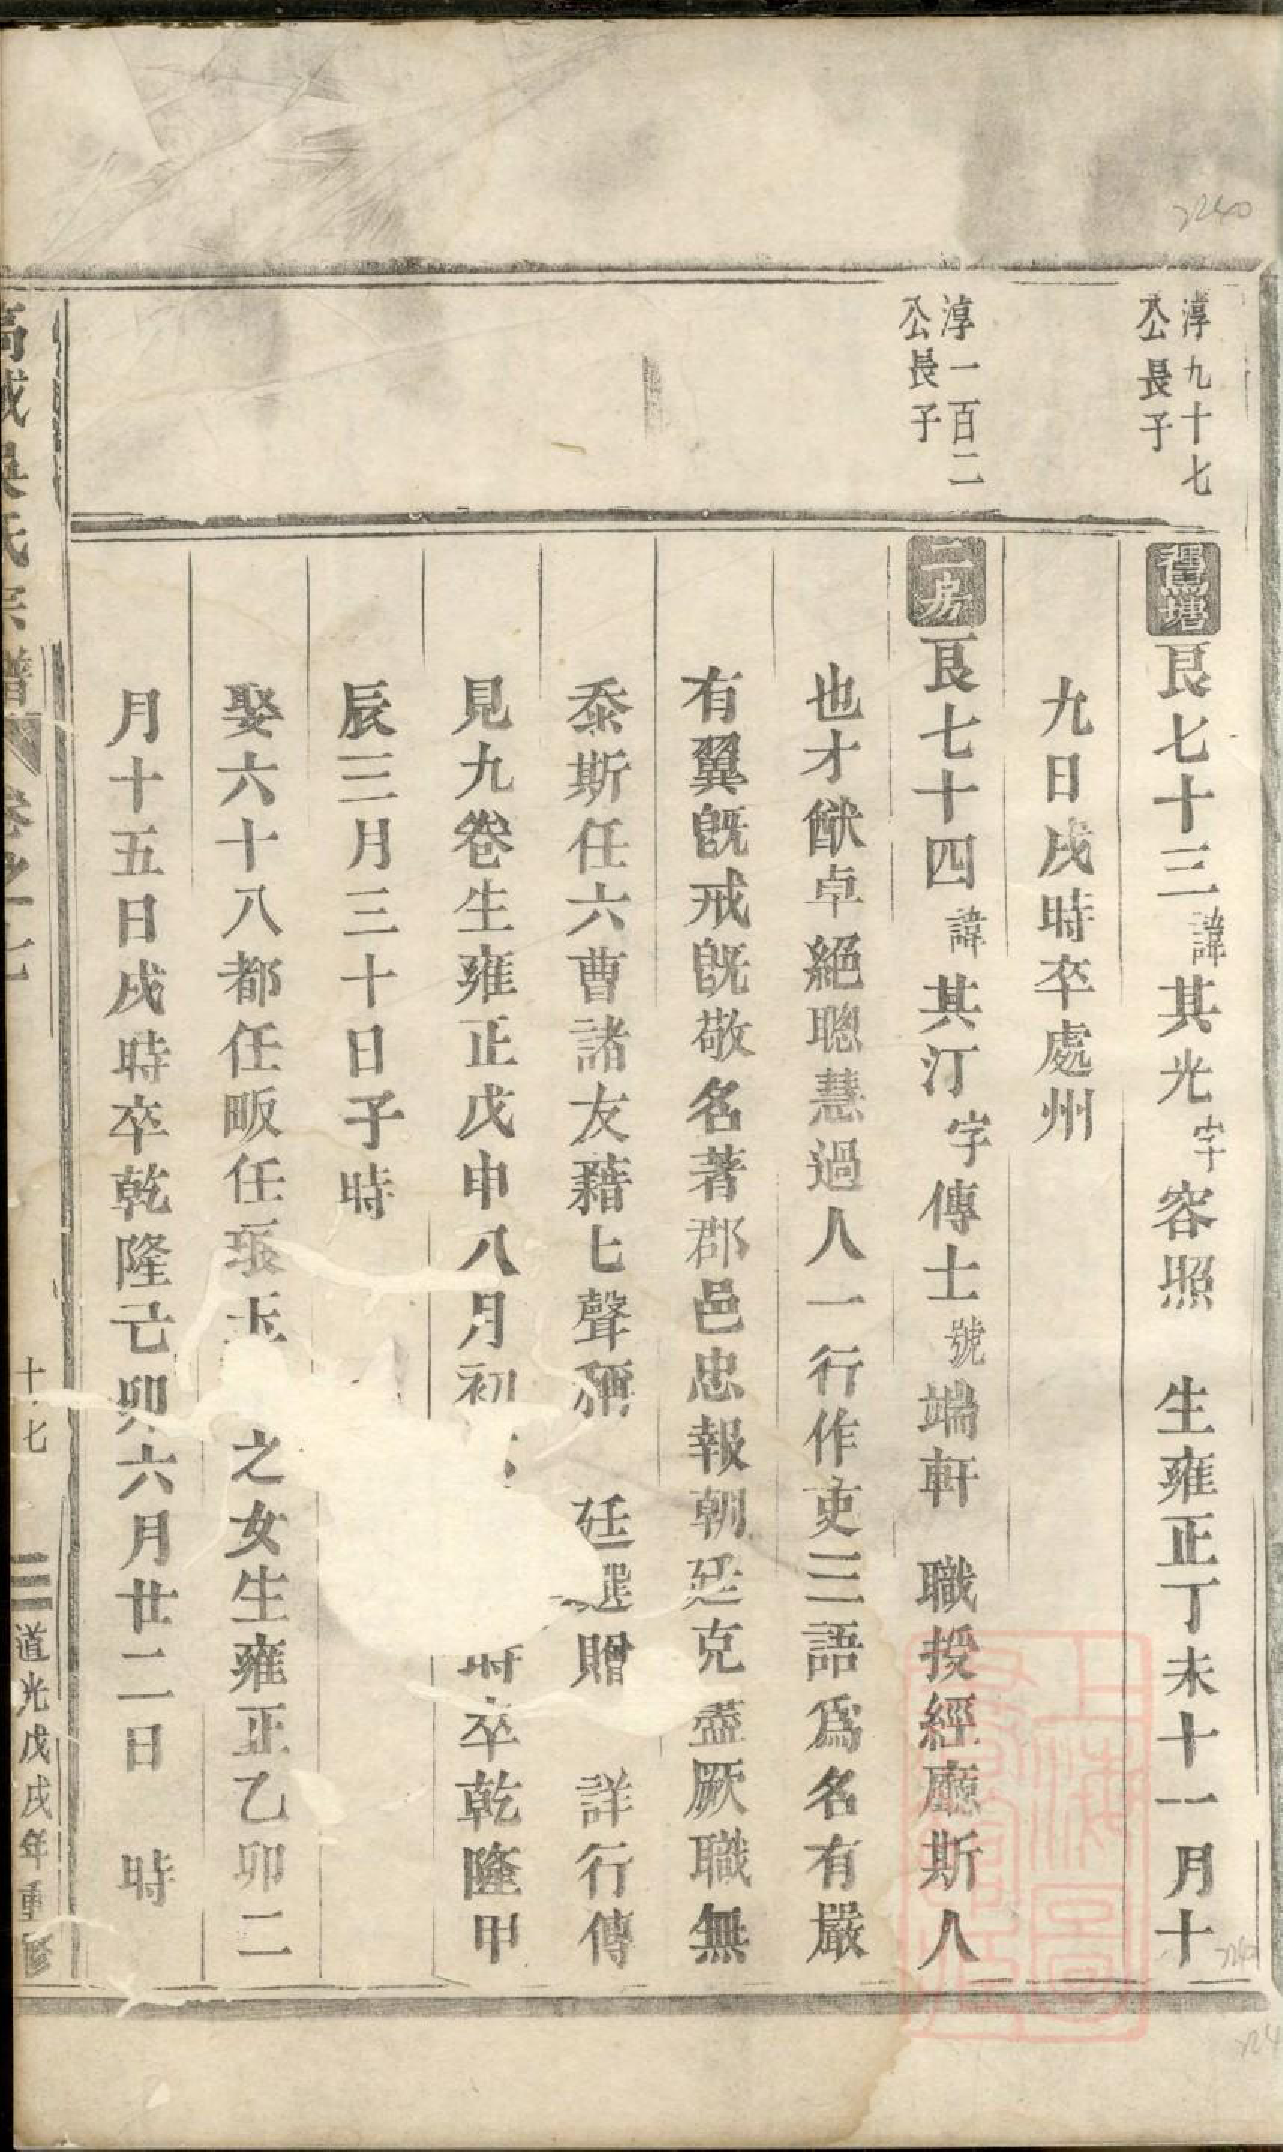 淳九十七
公長子
禡塘
良七十三諱其光字容照 生雍正丁未十一月十
九日戌時卒處州
淳一百二
公長子
二房
良七十四諱其汀字傳士號端軒 職授經廳斯人
也才猷卓絕聰慧過人一行作吏三語爲名有嚴
有翼旣戒旣敬名著郡邑忠報朝廷克盡厥職無
忝斯任六曹諸友藉七聲稱 廷 贈 詳行傳
見九卷生雍正戊申八月初 時卒乾隆甲
辰三月三十日子時
娶六十八都任畈任 玉 之女生雍正乙卯二
月十五日戌時卒乾隆己卯六月廿二日 時
高城吳氏宗譜 卷之七
十七
道光戊戌年重修
上海圖